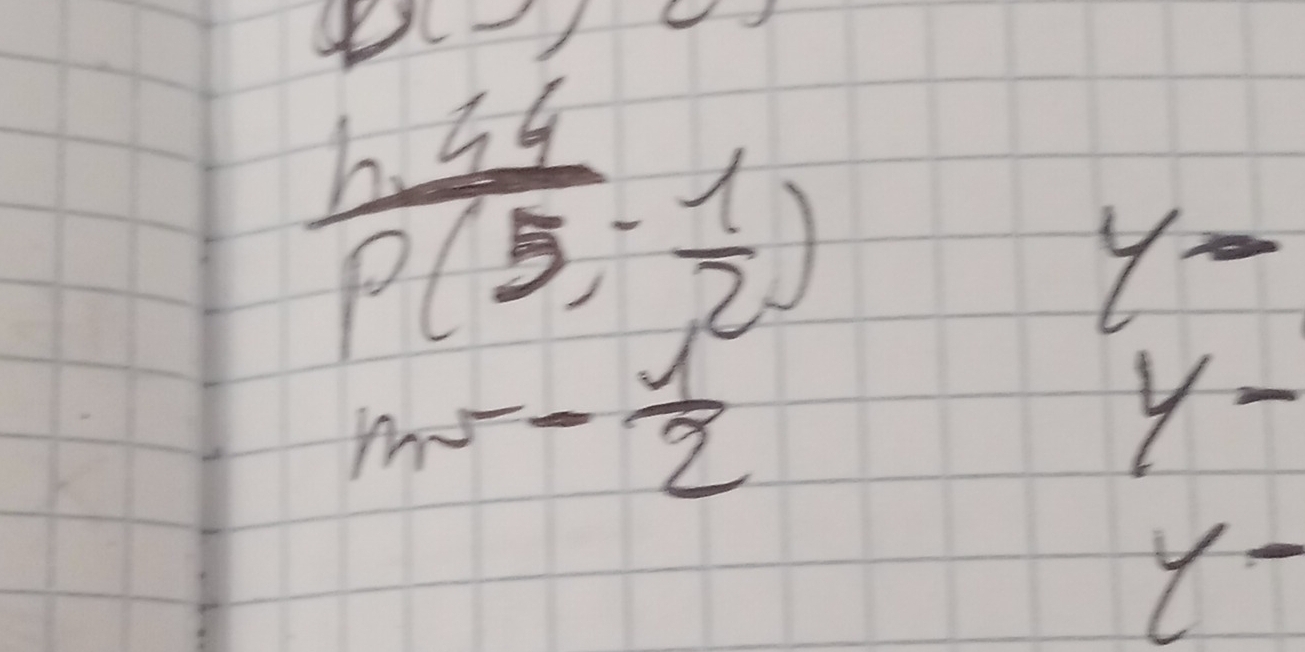 n. 44
P(5, -1/2)
m = -1/2
y -
y -
y -